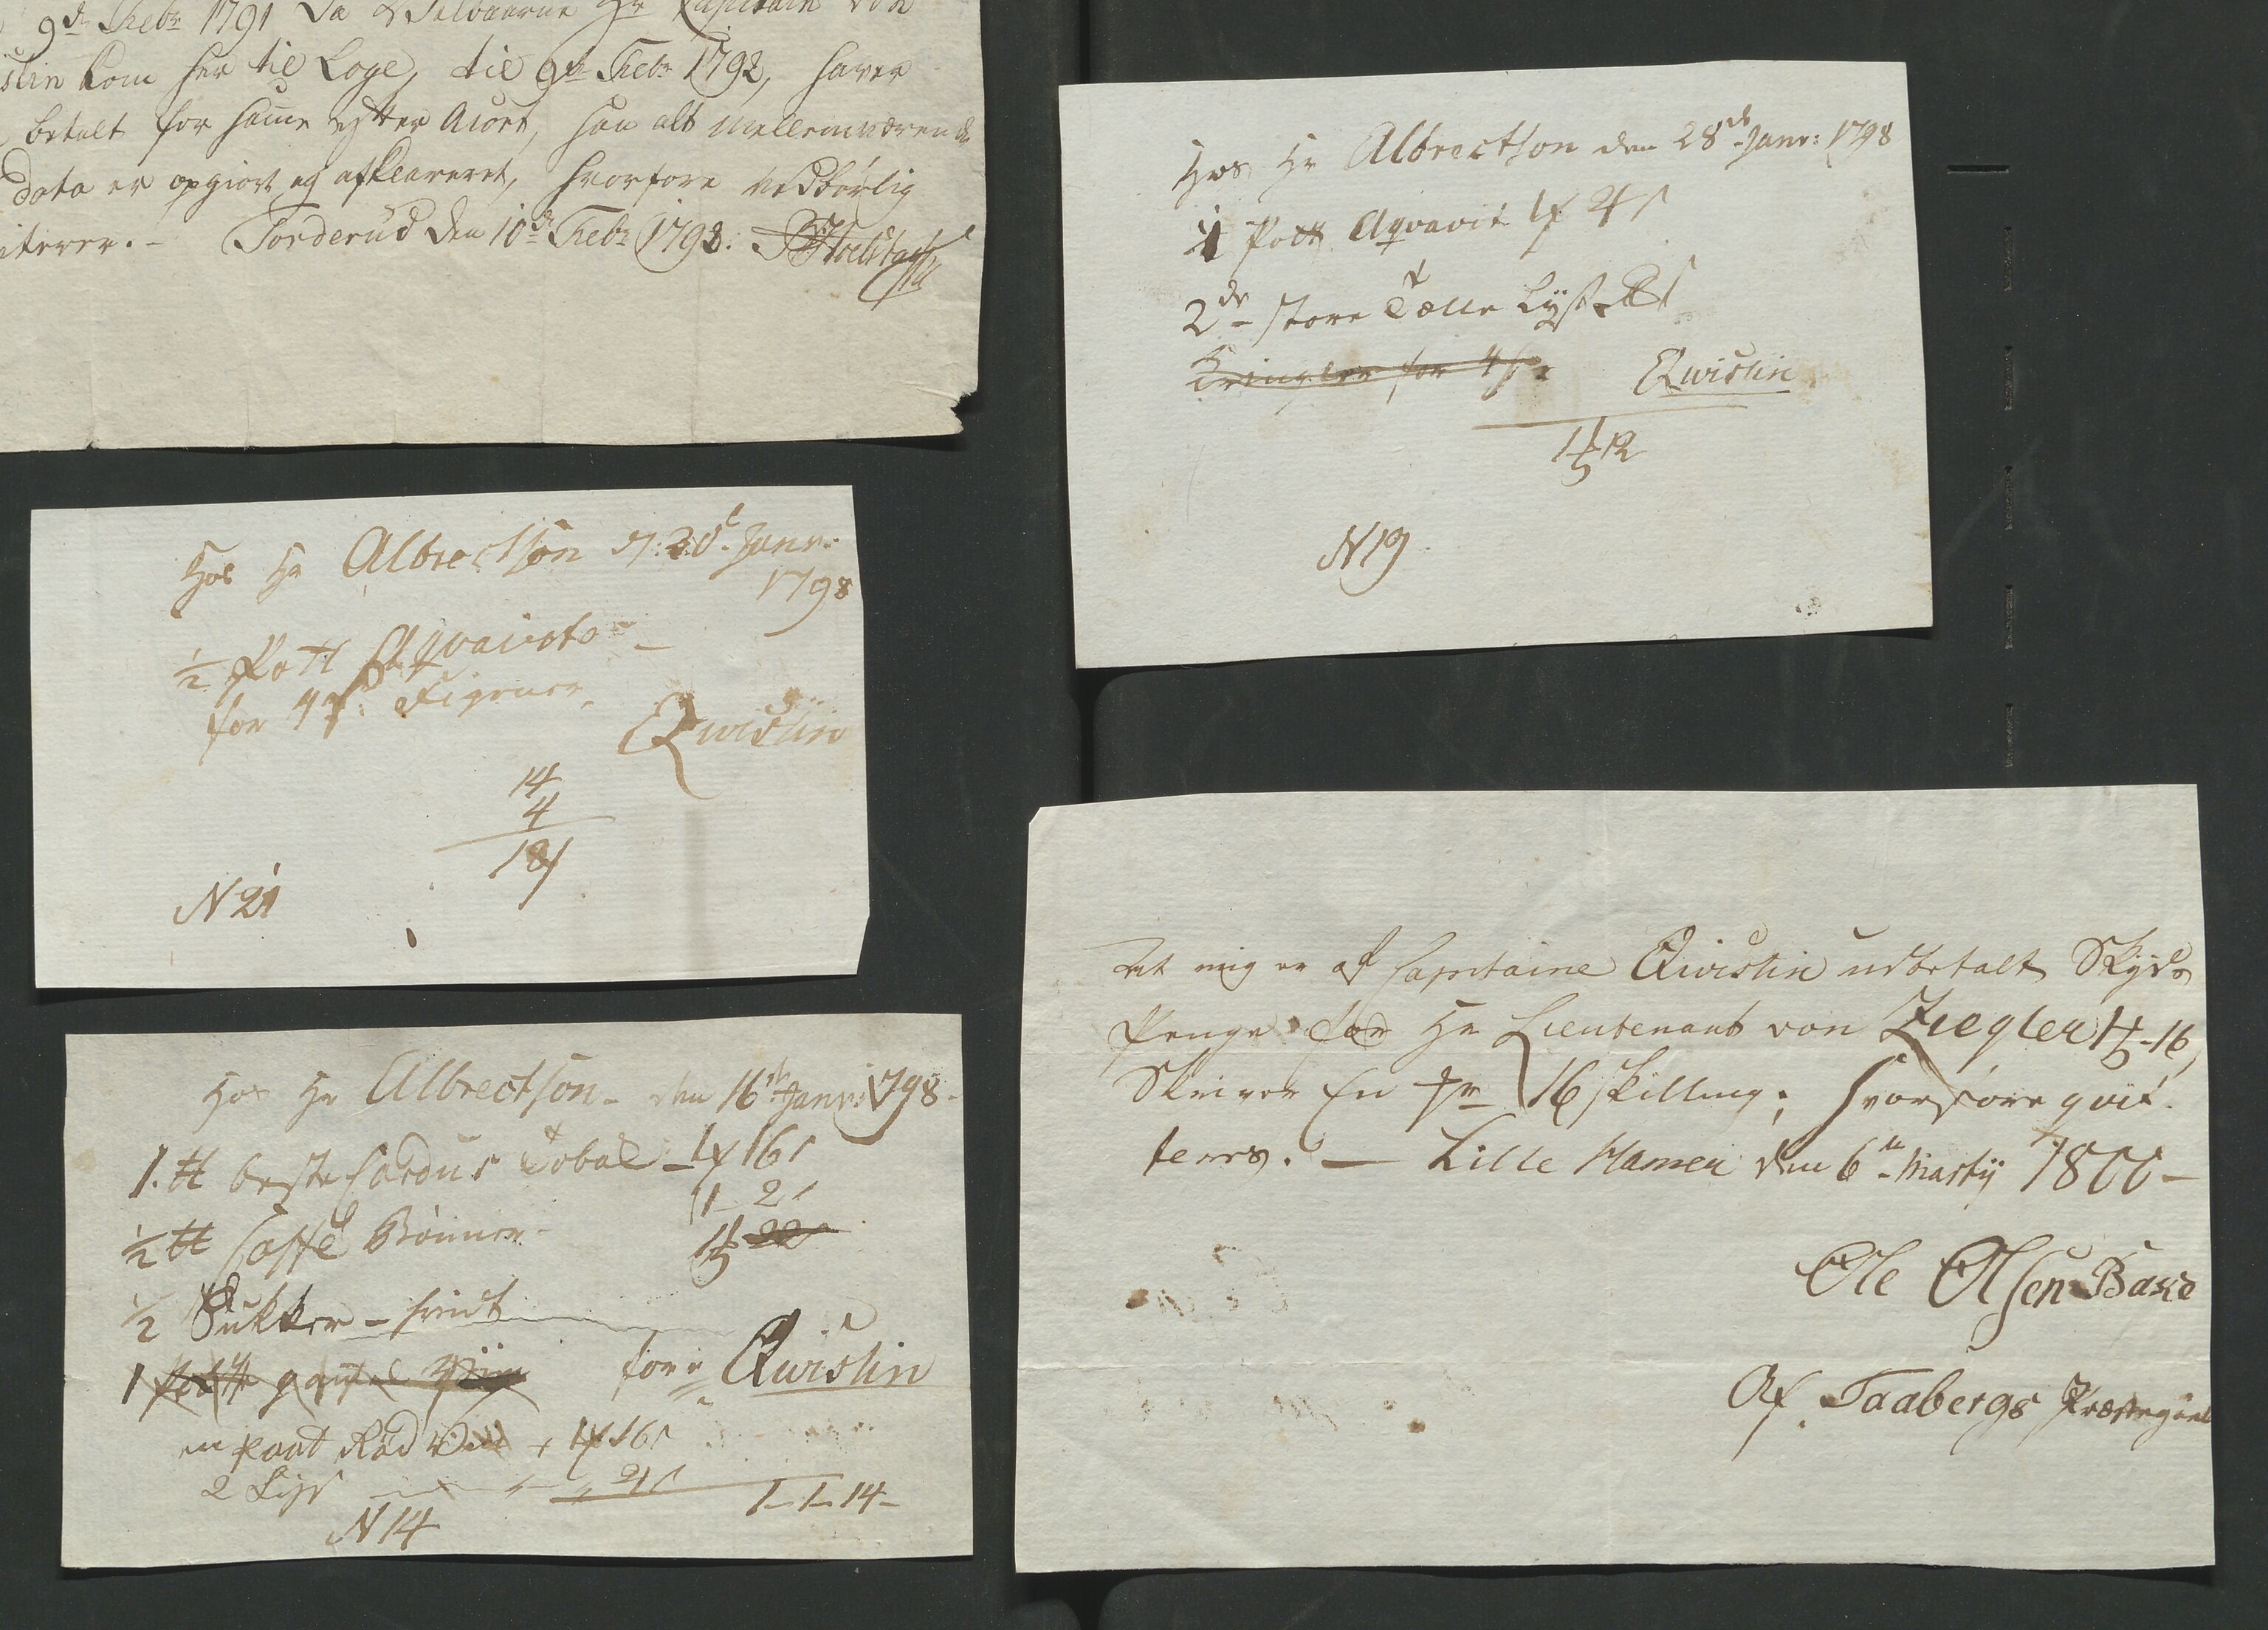 9de Febr 1791 da Velbaarne Hr Kapitain von
slin kom her til Loge, til 9de Febr 1792, haver
betalt for samme efter Acort, saa alt mellemværende
dato er opgiort og afklareret, hvorfore vedbørlig
iterer. - Torderud den 10de Febr 1792.
Hos Hr Albrectson den 28de Janr: 1798
1 Pott Aqvavit 1 4 s
2de store Tælle Lys
Kringler for 4 s Qwislin
1 12
N 19
Hos Hr Albrectson d: 20de Janr:
1798
1/2 Pott Aqvavit
for 4 s: Figener
Qwislin
14
4
18 s
N 21
Hos Hr Albrectson - den 16de Janr: 1798 -
1. ℔ beste Cardus Tobak - 1 16 s
1 - 2 s
1/2 ℔ Caffe Bønner -
1 22
1/2 Sukker - hvidt
1 Pott
for Qwislin
en Pott Rød Vin 1 16 s
2 Lys
1 - 1 - 14 -
N 14
At mig er af Capitaine Qwislin udbetalt Skyds
Penge for Hr Lieutenant von Ziegler 1 - 16,
Skriver En 16 skilling; hvorfore qvit-
teres. — Lille Hamer den 6te Martij 1800 -
Ole Olsen
Af Faabergs Præstegield